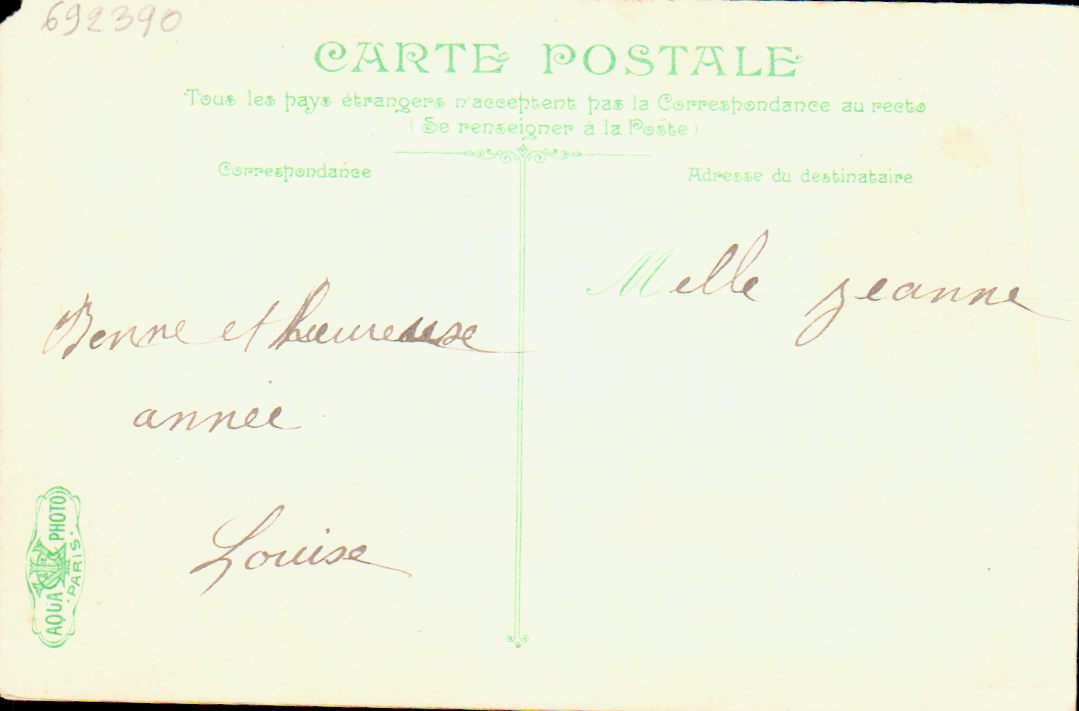 692390
CARTE POSTALE
Tous les pays étrangers n'acceptent pas la Correspondance au recto
(Se renseigner à la Poste)
Correspondance
Adresse du destinataire
Bonne et heureuse
année
Louise
Melle jeanne
AQUA PHOTO
PARIS